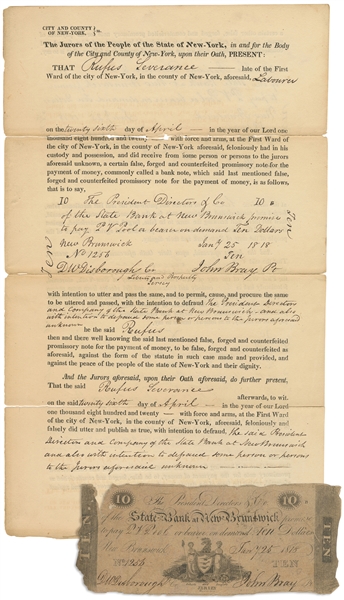 CITY AND COUNTY
OF NEW-YORK,
The Jurors of the People of the State of New-York, in and for the Body
of the City and County of New-York, upon their Oath, PRESENT:
THAT Rufus Severance late of the First
Ward of the city of New-York, in the county of New-York, aforesaid, Labourer
on the twenty sixth day of April in the year of our Lord one
thousand eight hundred and twenty with force and arms, at the First Ward
of the city of New-York, in the county of New-York, aforesaid, feloniously had in his
custody and possession, and did receive from some person or persons to the jurors
aforesaid unknown, a certain false, forged and counterfeited promissory note for the
payment of money, commonly called a bank note, which said last mentioned false,
forged and counterfeited promissory note for the payment of money, is as follows,
that is to say,
10 The President Directors & Co 10
of the State Bank at New Brunswick promise
to pay P V Pool or bearer on demand Ten Dollars
New Brunswick Jany 25 1818
No 1256 Ten
D W Disborough Ca John Bray Pt
TEN
Ten
Liberty and Prosperity
with intention to utter and pass the same, and to permit, cause, and procure the same
to be uttered and passed, with the intention to defraud the President Directors
and Company of the State Bank at New Brunswick and also
with intention to defraud some person or persons to the jurors aforesaid
unknown
he the said Rufus
then and there well knowing the said last mentioned false, forged and counterfeited
promissory note for the payment of money, to be false, forged and counterfeited as
aforesaid, against the form of the statute in such case made and provided, and
against the peace of the people of the state of New-York and their dignity.
And the Jurors aforesaid, upon their Oath aforesaid, do further present,
That the said Rufus Severance
afterwards, to wit.
on the said twenty sixth day of April in the year of our Lord
one thousand eight hundred and twenty with force and arms, at the First Ward
of the city of New-York, in the county of New-York, aforesaid, feloniously and
falsely did utter and publish as true, with intention to defraud, the said President
Directors and Company of the State Bank at New Brunswick
and also with intention to defraud some person or persons
to the jurors aforesaid unknown
10 The President Directors & Co 10
of the State Bank at New Brunswick promise
to pay or bearer on demand TEN Dollars
New Brunswick Jany 25 1818
No 1256 TEN
D W Disborough John Bray
TEN
TEN